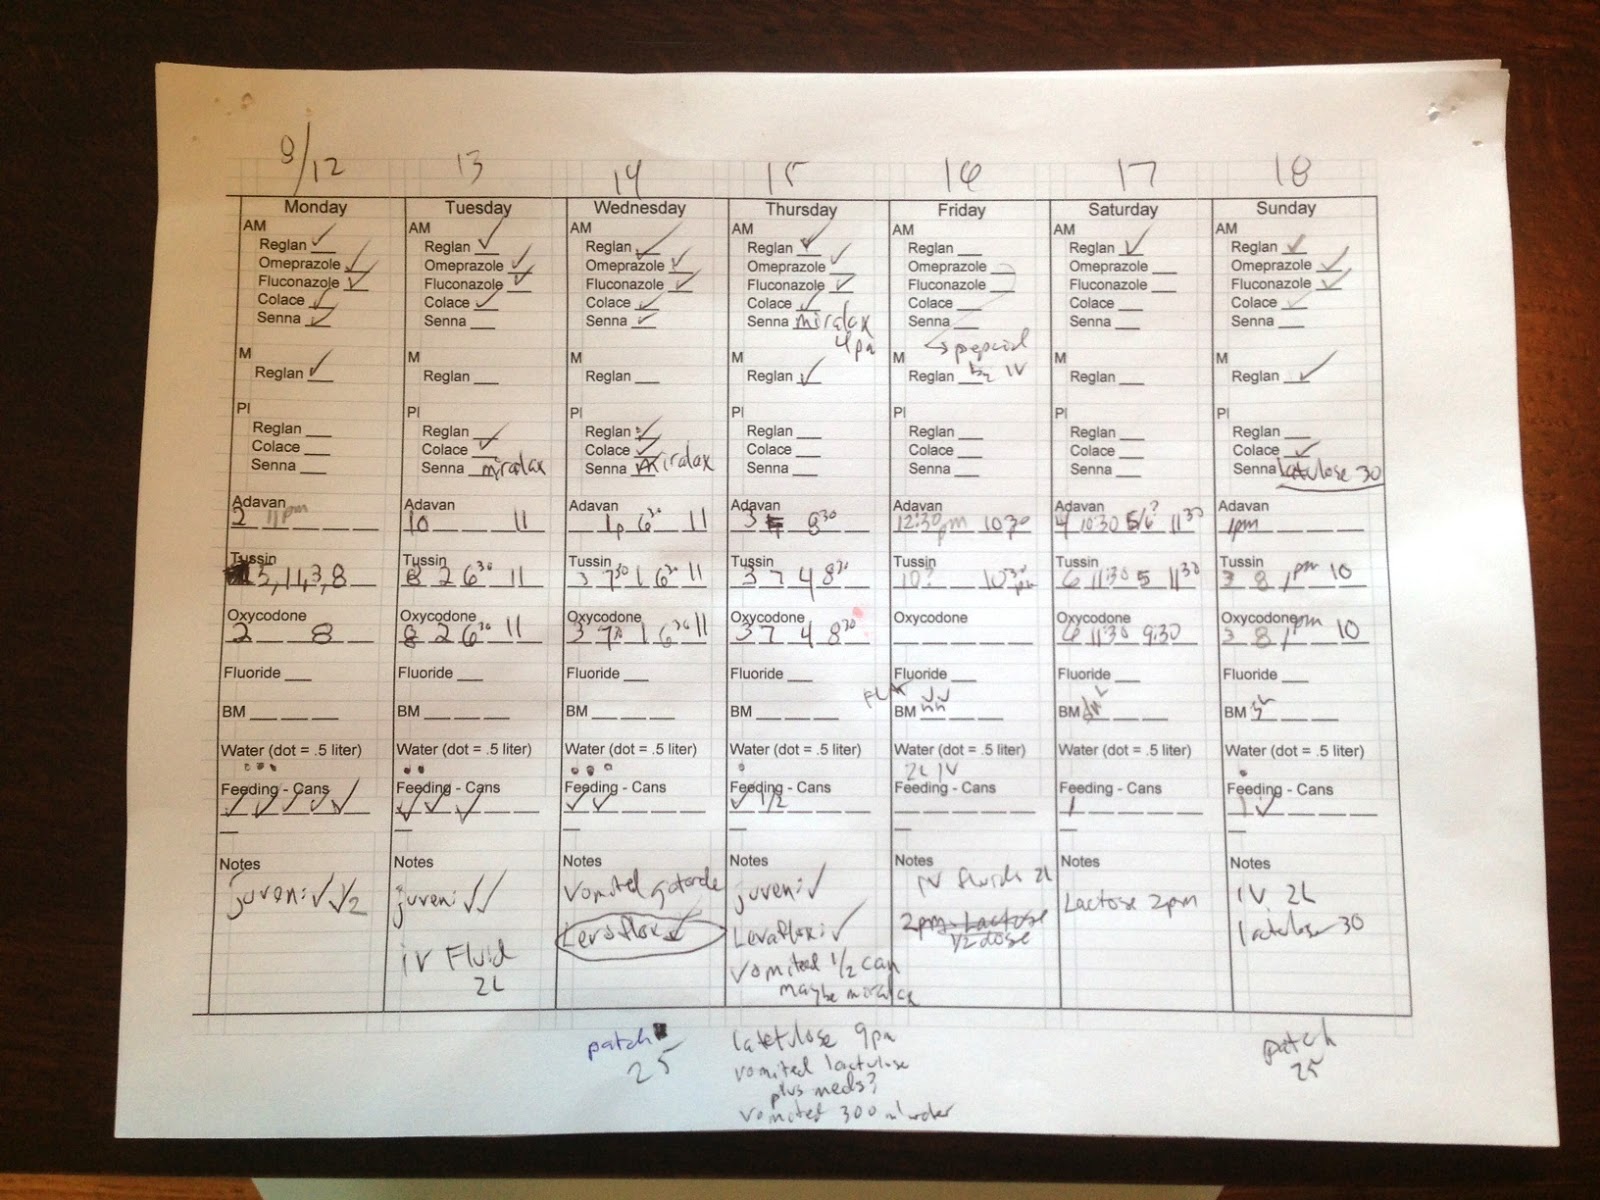 8/12 13 14 15 16 17 18
Monday
AM
Reglan ✓
Omeprazole ✓
Fluconazole ✓
Colace ✓
Senna ✓
M
Reglan ✓
PI
Reglan __
Colace __
Senna __
Adavan
2 11pm
Tussin
3, 11, 3, 8
Oxycodone
2 8
Fluoride __
BM __ __ __
Water (dot = .5 liter)
• • •
Feeding - Cans
✓ ✓ ✓ ✓ ✓
Notes
juven: ✓ ✓ 1/2
Tuesday
AM
Reglan ✓
Omeprazole ✓
Fluconazole ✓
Colace ✓
Senna __
M
Reglan __
PI
Reglan __
Colace ✓
Senna miralax
Adavan
10 11
Tussin
8 2 6³⁰ 11
Oxycodone
8 2 6³⁰ 11
Fluoride __
BM __ __ __
Water (dot = .5 liter)
• •
Feeding - Cans
✓ ✓ ✓
Notes
juven: ✓ ✓
IV Fluid
2L
Wednesday
AM
Reglan ✓
Omeprazole ✓
Fluconazole ✓
Colace ✓
Senna ✓
M
Reglan __
PI
Reglan ✓
Colace ✓
Senna Miralax
Adavan
1p 6³⁰ 11
Tussin
3 7³⁰ 1 6³⁰ 11
Oxycodone
3 7³⁰ 1 6³⁰ 11
Fluoride __
BM __ __ __
Water (dot = .5 liter)
• • •
Feeding - Cans
✓ ✓
Notes
Vomited gatorde
Levaflox ✓
patch
25
Thursday
AM
Reglan ✓
Omeprazole ✓
Fluconazole ✓
Colace ✓
Senna miralax
4pm
M
Reglan ✓
PI
Reglan __
Colace __
Senna __
Adavan
3 8³⁰
Tussin
3 7 4 8³⁰
Oxycodone
3 7 4 8³⁰
Fluoride __
BM __ __ __
Water (dot = .5 liter)
•
Feeding - Cans
✓ 1/2
Notes
juven: ✓
Levaflox: ✓
Vomited 1/2 can
maybe miralax
latctulose 9pm
vomited lactulose
plus meds?
vomited 300 ml water
Friday
AM
Reglan __
Omeprazole __
Fluconazole __
Colace __
Senna __
pepcid
by IV
M
Reglan __
PI
Reglan __
Colace __
Senna __
Adavan
12:30pm 10³⁰
Tussin
10? 10³⁰ pm
Oxycodone
Fluoride __
BM
Water (dot = .5 liter)
2L IV
Feeding - Cans
Notes
IV fluids 2L
2pm Lactose
1/2 dose
Saturday
AM
Reglan ✓
Omeprazole __
Fluconazole __
Colace __
Senna __
M
Reglan __
PI
Reglan __
Colace __
Senna __
Adavan
4 10:30 5/6? 11³⁰
Tussin
6 11:30 5 11³⁰
Oxycodone
6 11:30 9:30
Fluoride __
BM
Water (dot = .5 liter)
Feeding - Cans
1
Notes
Lactose 2pm
Sunday
AM
Reglan ✓
Omeprazole ✓
Fluconazole ✓
Colace ✓
Senna __
M
Reglan ✓
PI
Reglan __
Colace ✓
Senna latulose 30
Adavan
1pm
Tussin
3 8 1pm 10
Oxycodone
3 8 1pm 10
Fluoride __
BM
Water (dot = .5 liter)
•
Feeding - Cans
1 ✓
Notes
IV 2L
lactulose 30
patch
25